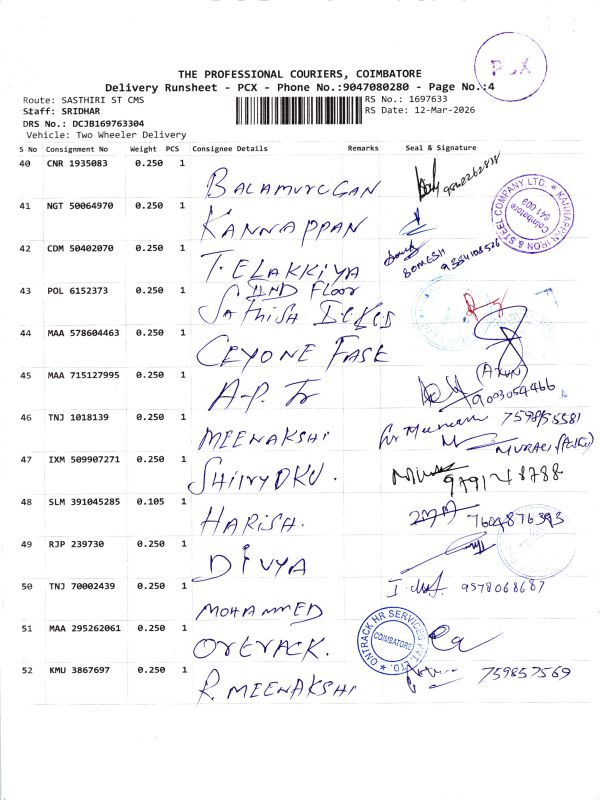 PCX
THE PROFESSIONAL COURIERS, COIMBATORE
Delivery Runsheet - PCX - Phone No.:9047080280 - Page No.:4
Route: SASTHIRI ST CMS
RS No.: 1697633
Staff: SRIDHAR
RS Date: 12-Mar-2026
DRS No.: DCJB169763304
Vehicle: Two Wheeler Delivery
S No Consignment No Weight PCS Consignee Details Remarks Seal & Signature
40 CNR 1935083 0.250 1
BALAMURUGAN
41 NGT 50064970 0.250 1
KANNAPPAN
KANNAPPAN IRON & STEEL COMPANY LTD. Coimbatore 641 009
42 CDM 50402070 0.250 1
T. ELAKKIYA SOMESH 9384108526
43 POL 6152373 0.250 1
IIND Floor
Sathish
44 MAA 578604463 0.250 1
CEYONE FASE
45 MAA 715127995 0.250 1
(ARUN)
A-P. Tr 9003054466
46 TNJ 1018139 0.250 1
MEENAKSHI
MURALI
47 IXM 509907271 0.250 1
9791248788
48 SLM 391045285 0.105 1
HARISH. 7604876393
49 RJP 239730 0.250 1
DIVYA
50 TNJ 70002439 0.250 1
9578068687
MOHAMMED
51 MAA 295262061 0.250 1
ONTRACK HR SERVICES PVT. LTD. COIMBATORE
52 KMU 3867697 0.250 1
759857569
R. MEENAKSHI